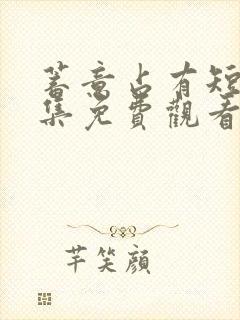 蓄意占有短
集免費觀看
芊笑顔